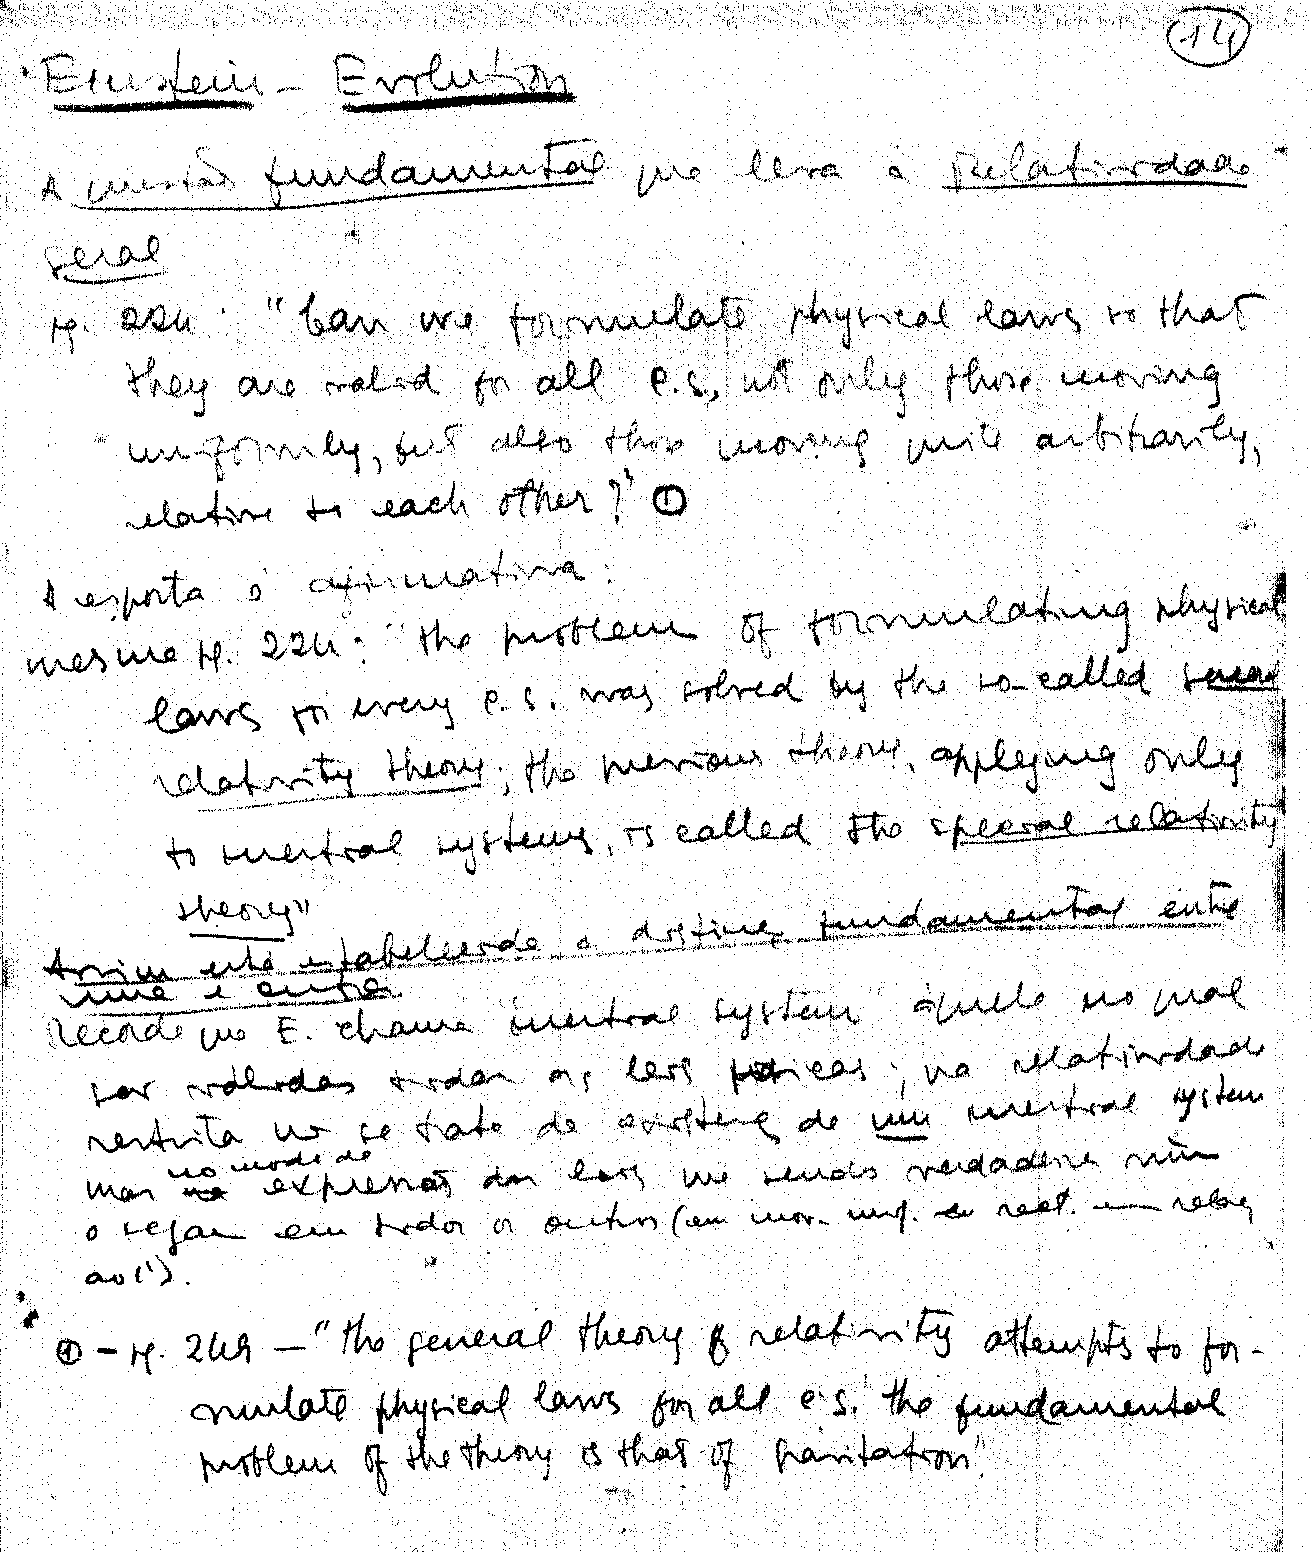 14
Einstein - Evolution
A questão fundamental que leva à Relatividade
Geral
pg. 224: "Can we formulate physical laws so that
they are valid for all c.s., not only those moving
uniformly, but also those moving quite arbitrarily,
relative to each other?" ①
A resposta é afirmativa:
mesma pg. 224: "the problem of formulating physical
laws for every c.s. was solved by the so-called general
relativity theory; the previous theory, applying only
to inertial systems, is called the special relativity
theory"
Assim está estabelecida a distinç. fundamental entre
uma e outra
Recorde que E. chama "inertial system" àquele no qual
são válidas todas as leis físicas; na relatividade
restrita não se trata de existenç de um inertial system
no modo de
mas expressão das leis que sendo verdadeira num
o sejam em todos os outros (em mov. unif. e rect. em relaç
ao 1º).
① - pg. 249 - "the general theory of relativity attempts to for-
mulate physical laws for all c.s. the fundamental
problem of the theory is that of gravitation".